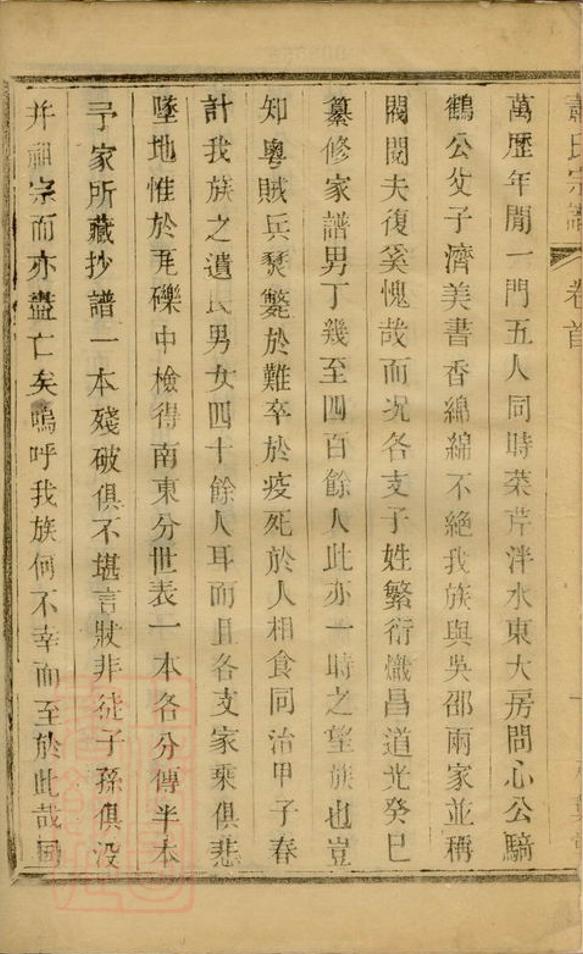 氏宗譜 卷首
萬歷年閒一門五人同時菜芹泮水東大房問心公騎
鶴公父子濟美書香綿綿不絕我族與吳邵兩家並稱
閥閱夫復奚愧哉而况各支子姓繁衍熾昌道光癸巳
纂修家譜男丁幾至四百餘人此亦一時之望族也豈
知粵賊兵燹斃於難卒於疫死於人相食同治甲子春
計我族之遺民男女四十餘人耳而且各支家乘俱悲
墜地惟於瓦礫中檢得南東分世表一本各分傳半本
予家所藏抄譜一本殘破俱不堪言狀非徒子孫俱没
并祖宗而亦盡亡矣嗚呼我族何不幸而至於此哉同